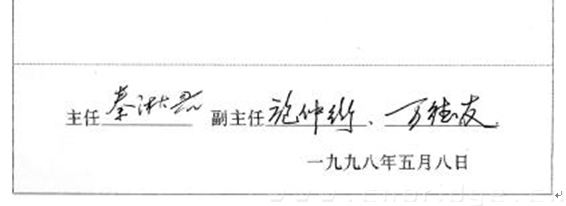 主任 秦淞君 副主任 施仲衡、万德友
一九九八年五月八日